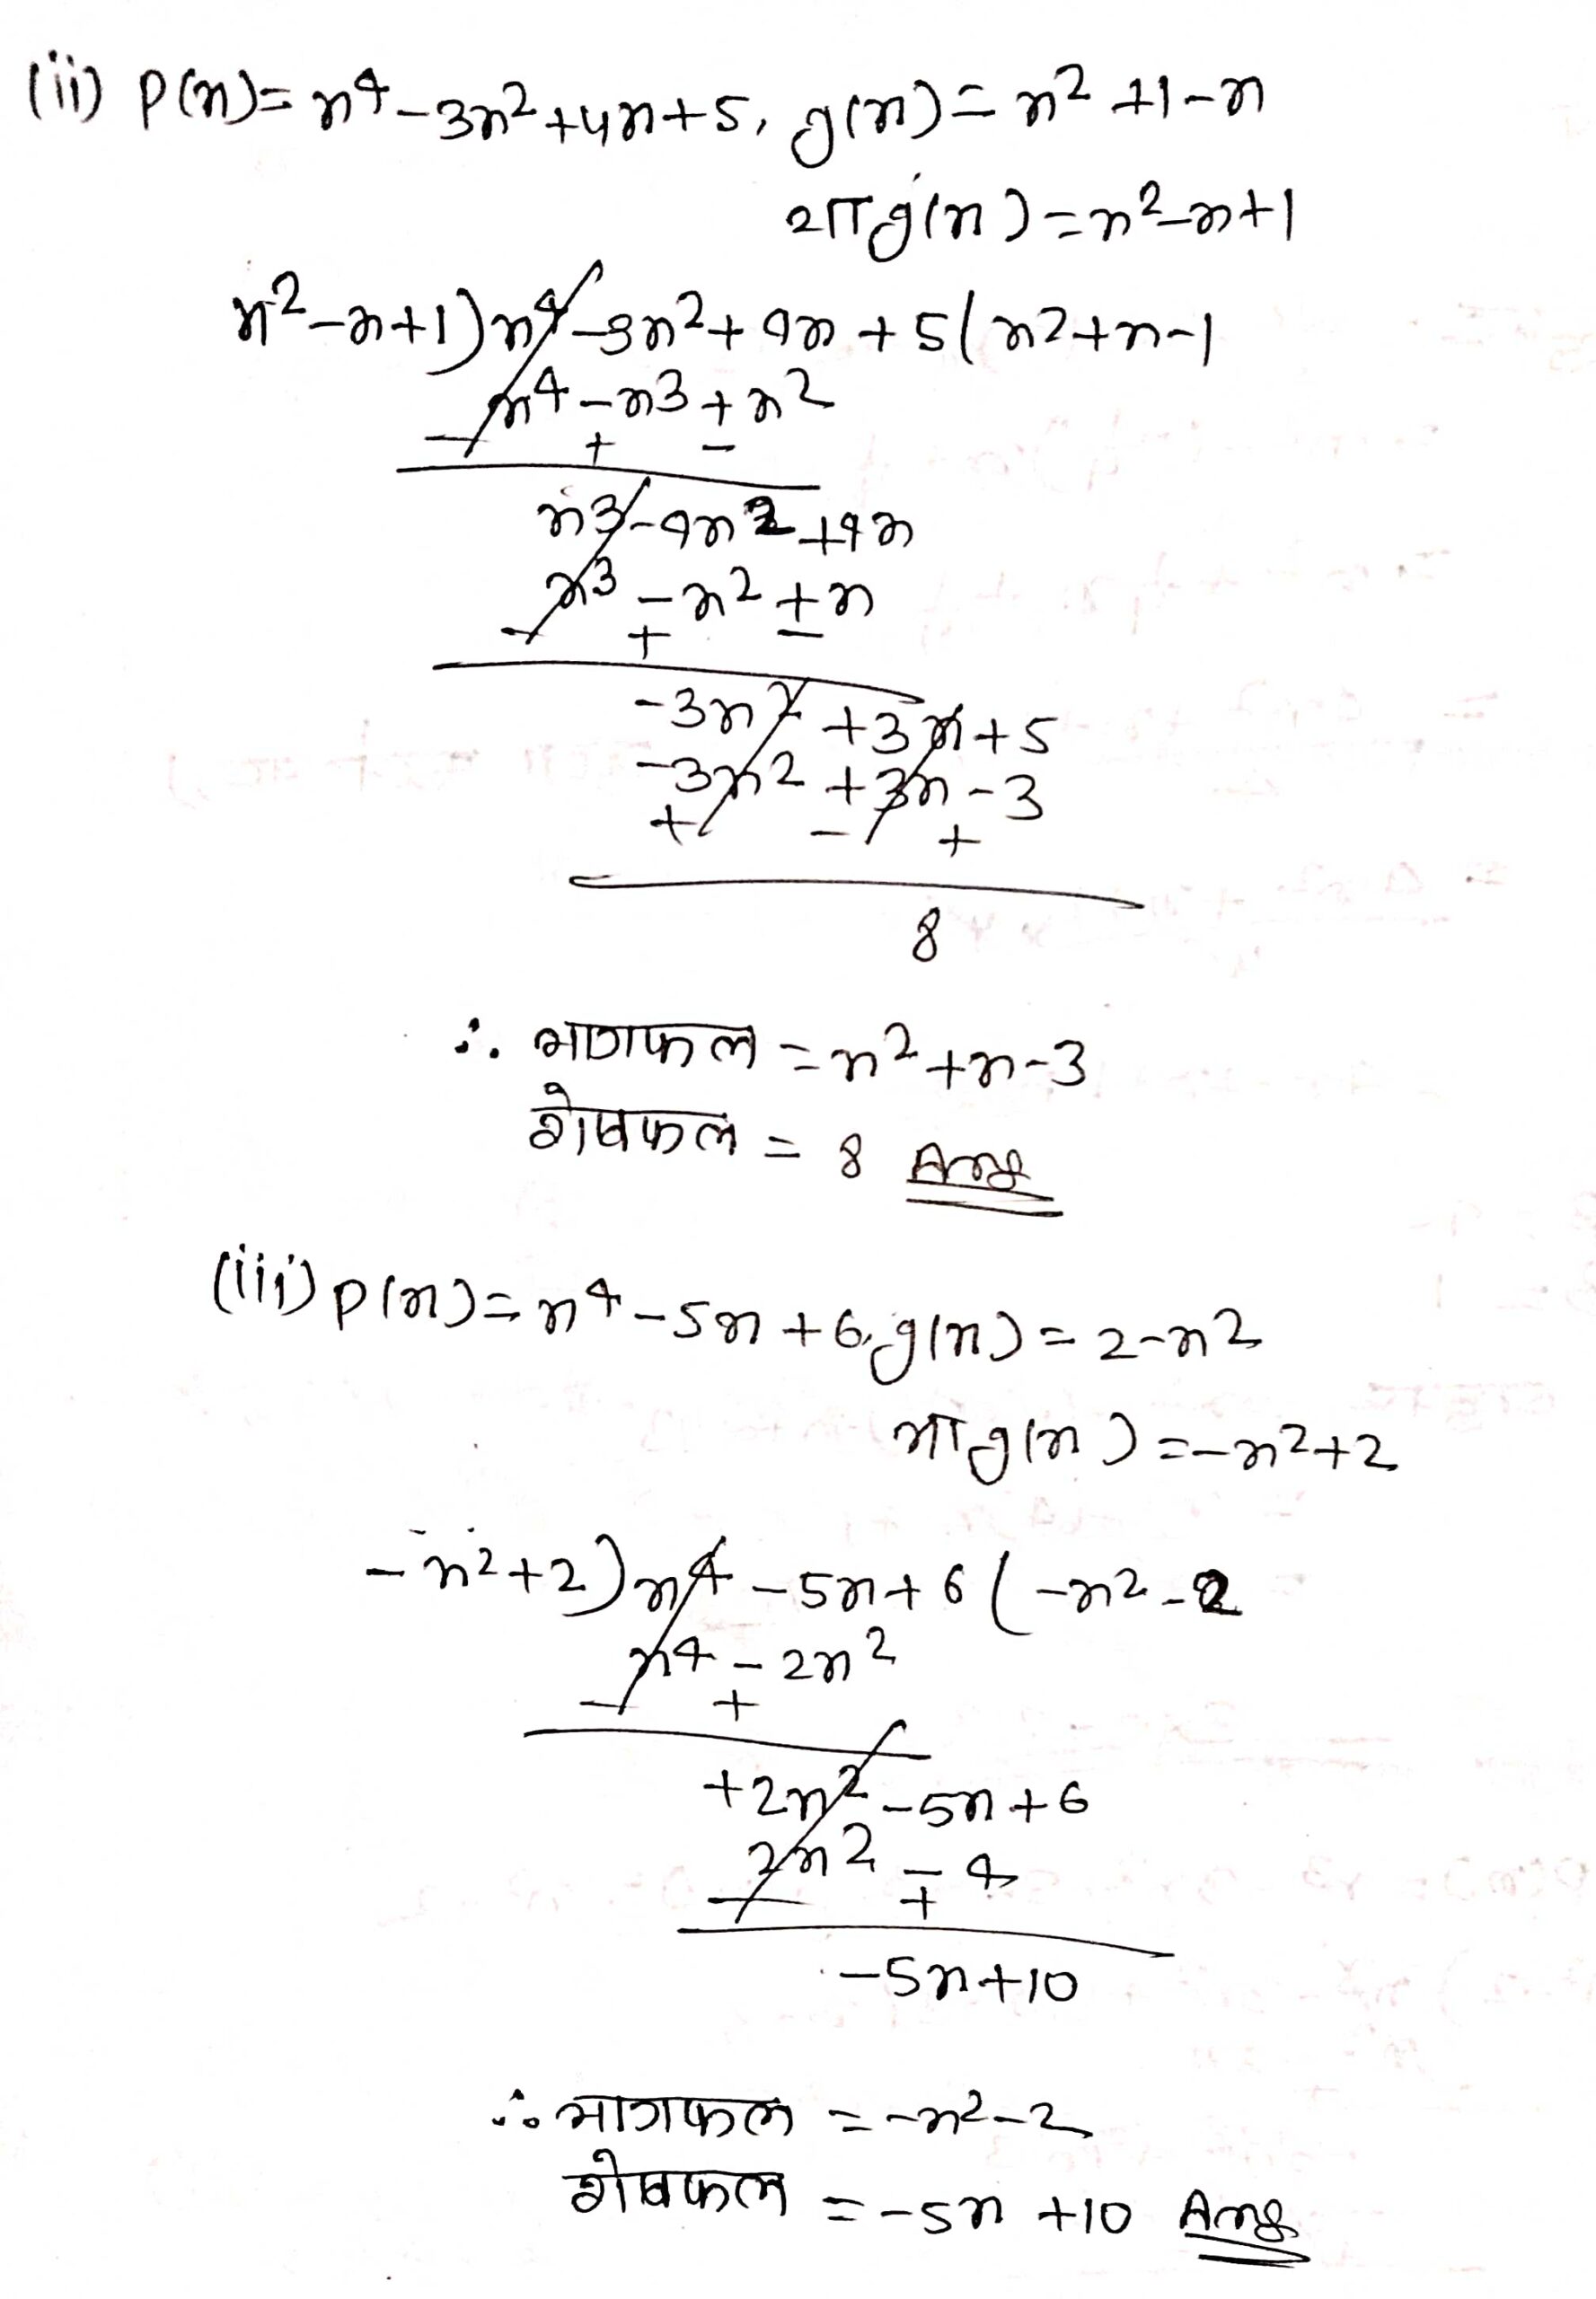 (ii) P(x)= x⁴-3x²+4x+5, g(x)= x²+1-x
या g(x)=x²-x+1
x²-x+1)x⁴-3x²+4x+5(x²+x-1
x⁴-x³+x²
- + -
x³-4x²+4x
x³-x²+x
- + -
-3x²+3x+5
-3x²+3x-3
+ - +
8
∴ भागफल =x²+x-3
शेषफल = 8 Ans
(iii) P(x)= x⁴-5x+6, g(x)= 2-x²
या g(x)=-x²+2
-x²+2)x⁴-5x+6(-x²-2
x⁴-2x²
- +
+2x²-5x+6
2x²-4
- +
-5x+10
∴ भागफल =-x²-2
शेषफल =-5x+10 Ans